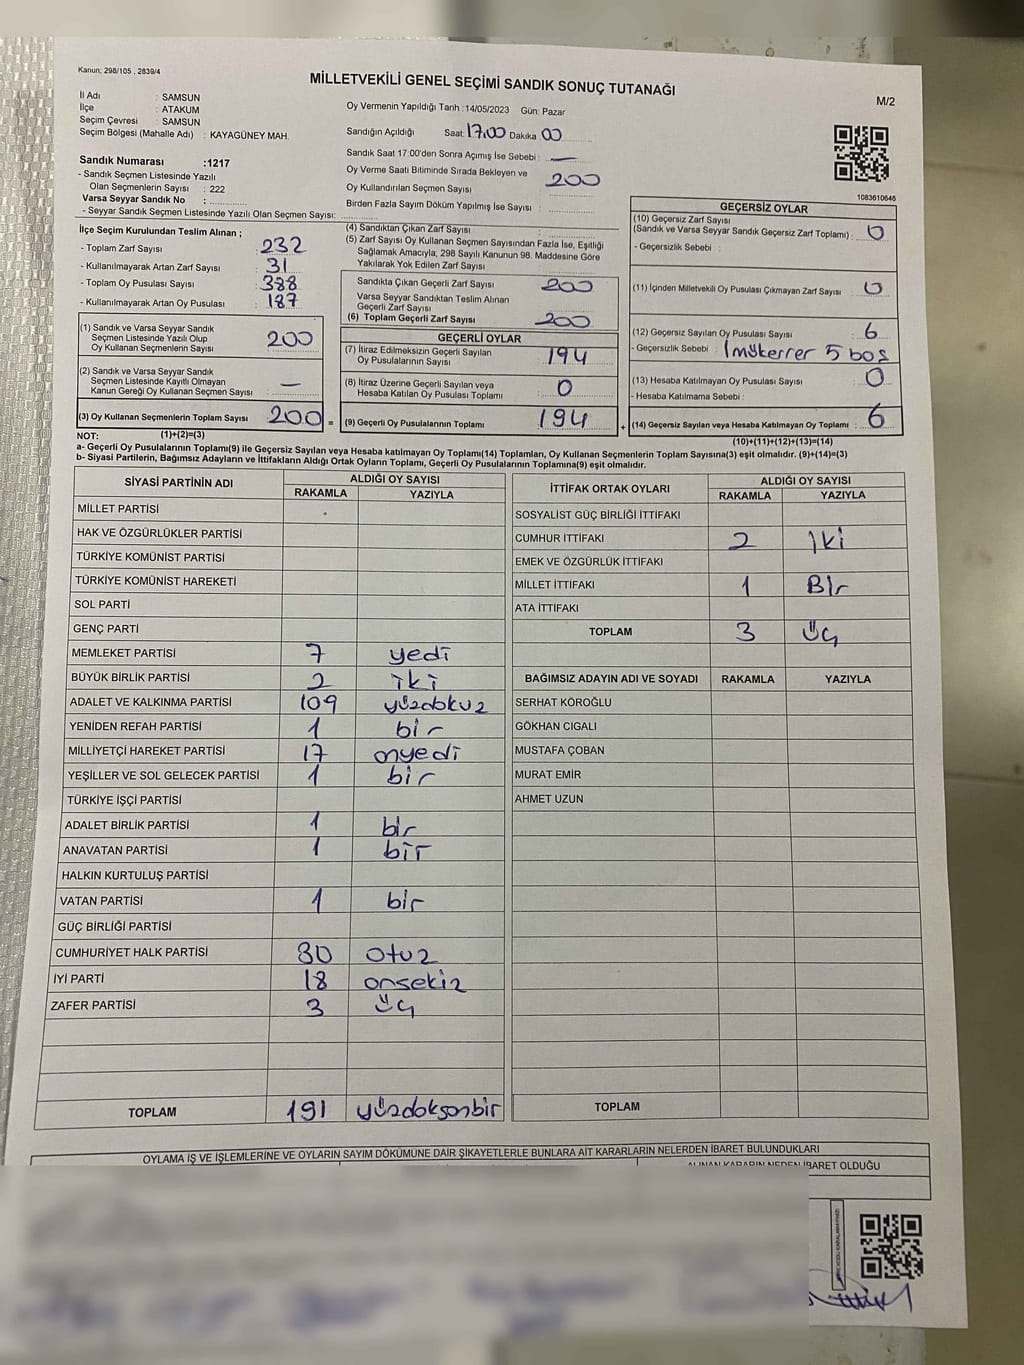 Kanun; 298/105 , 2839/4
MİLLETVEKİLİ GENEL SEÇİMİ SANDIK SONUÇ TUTANAĞI
M/2
İl Adı : SAMSUN
İlçe : ATAKUM
Seçim Çevresi : SAMSUN
Seçim Bölgesi (Mahalle Adı) : KAYAGÜNEY MAH.
Sandık Numarası :1217
- Sandık Seçmen Listesinde Yazılı
Olan Seçmenlerin Sayısı : 222
Varsa Seyyar Sandık No :
- Seyyar Sandık Seçmen Listesinde Yazılı Olan Seçmen Sayısı:
Oy Vermenin Yapıldığı Tarih :14/05/2023 Gün: Pazar
Sandığın Açıldığı Saat: 17.00 Dakika 00
Sandık Saat 17:00'den Sonra Açımış İse Sebebi : —
Oy Verme Saati Bitiminde Sırada Bekleyen ve
Oy Kullandırılan Seçmen Sayısı 200
Birden Fazla Sayım Döküm Yapılmış İse Sayısı :
1083610646
İlçe Seçim Kurulundan Teslim Alınan ;
- Toplam Zarf Sayısı : 232
- Kullanılmayarak Artan Zarf Sayısı : 31
- Toplam Oy Pusulası Sayısı : 388
- Kullanılmayarak Artan Oy Pusulası : 187
(1) Sandık ve Varsa Seyyar Sandık
Seçmen Listesinde Yazılı Olup
Oy Kullanan Seçmenlerin Sayısı : 200
(2) Sandık ve Varsa Seyyar Sandık
Seçmen Listesinde Kayıtlı Olmayan
Kanun Gereği Oy Kullanan Seçmen Sayısı : —
(3) Oy Kullanan Seçmenlerin Toplam Sayısı 200 =
(1)+(2)=(3)
(4) Sandıktan Çıkan Zarf Sayısı :
(5) Zarf Sayısı Oy Kullanan Seçmen Sayısından Fazla İse, Eşitliği
Sağlamak Amacıyla, 298 Sayılı Kanunun 98. Maddesine Göre
Yakılarak Yok Edilen Zarf Sayısı
Sandıkta Çıkan Geçerli Zarf Sayısı : 200
Varsa Seyyar Sandıktan Teslim Alınan
Geçerli Zarf Sayısı
(6) Toplam Geçerli Zarf Sayısı : 200
GEÇERLİ OYLAR
(7) İtiraz Edilmeksizin Geçerli Sayılan
Oy Pusulalarının Sayısı : 194
(8) İtiraz Üzerine Geçerli Sayılan veya
Hesaba Katılan Oy Pusulası Toplamı : 0
(9) Geçerli Oy Pusulalarının Toplamı : 194 +
GEÇERSİZ OYLAR
(10) Geçersiz Zarf Sayısı
(Sandık ve Varsa Seyyar Sandık Geçersiz Zarf Toplamı) : 0
- Geçersizlik Sebebi :
(11) İçinden Milletvekili Oy Pusulası Çıkmayan Zarf Sayısı : 0
(12) Geçersiz Sayılan Oy Pusulası Sayısı : 6
- Geçersizlik Sebebi : 1 mükerrer 5 boş
(13) Hesaba Katılmayan Oy Pusulası Sayısı : 0
- Hesaba Katılmama Sebebi :
(14) Geçersiz Sayılan veya Hesaba Katılmayan Oy Toplamı : 6
(10)+(11)+(12)+(13)=(14)
NOT:
a- Geçerli Oy Pusulalarının Toplamı(9) ile Geçersiz Sayılan veya Hesaba Katılmayan Oy Toplamı(14) Toplamları, Oy Kullanan Seçmenlerin Toplam Sayısına(3) eşit olmalıdır. (9)+(14)=(3)
b- Siyasi Partilerin, Bağımsız Adayların ve İttifakların Aldığı Ortak Oyların Toplamı, Geçerli Oy Pusulalarının Toplamına(9) eşit olmalıdır.
SİYASİ PARTİNİN ADI ALDIĞI OY SAYISI
RAKAMLA YAZIYLA
MİLLET PARTİSİ
HAK VE ÖZGÜRLÜKLER PARTİSİ
TÜRKİYE KOMÜNİST PARTİSİ
TÜRKİYE KOMÜNİST HAREKETİ
SOL PARTİ
GENÇ PARTİ
MEMLEKET PARTİSİ 7 yedi
BÜYÜK BİRLİK PARTİSİ 2 iki
ADALET VE KALKINMA PARTİSİ 109 yüzdokuz
YENİDEN REFAH PARTİSİ 1 bir
MİLLİYETÇİ HAREKET PARTİSİ 17 onyedi
YEŞİLLER VE SOL GELECEK PARTİSİ 1 bir
TÜRKİYE İŞÇİ PARTİSİ
ADALET BİRLİK PARTİSİ 1 bir
ANAVATAN PARTİSİ 1 bir
HALKIN KURTULUŞ PARTİSİ
VATAN PARTİSİ 1 bir
GÜÇ BİRLİĞİ PARTİSİ
CUMHURİYET HALK PARTİSİ 30 otuz
İYİ PARTİ 18 onsekiz
ZAFER PARTİSİ 3 üç
TOPLAM 191 yüzdoksanbir
İTTİFAK ORTAK OYLARI ALDIĞI OY SAYISI
RAKAMLA YAZIYLA
SOSYALİST GÜÇ BİRLİĞİ İTTİFAKI
CUMHUR İTTİFAKI 2 iki
EMEK VE ÖZGÜRLÜK İTTİFAKI
MİLLET İTTİFAKI 1 Bir
ATA İTTİFAKI
TOPLAM 3 üç
BAĞIMSIZ ADAYIN ADI VE SOYADI RAKAMLA YAZIYLA
SERHAT KÖROĞLU
GÖKHAN CIGALI
MUSTAFA ÇOBAN
MURAT EMİR
AHMET UZUN
TOPLAM
OYLAMA İŞ VE İŞLEMLERİNE VE OYLARIN SAYIM DÖKÜMÜNE DAİR ŞİKAYETLERLE BUNLARA AİT KARARLARIN NELERDEN İBARET BULUNDUKLARI
ALINAN KARARIN NEDEN İBARET OLDUĞU